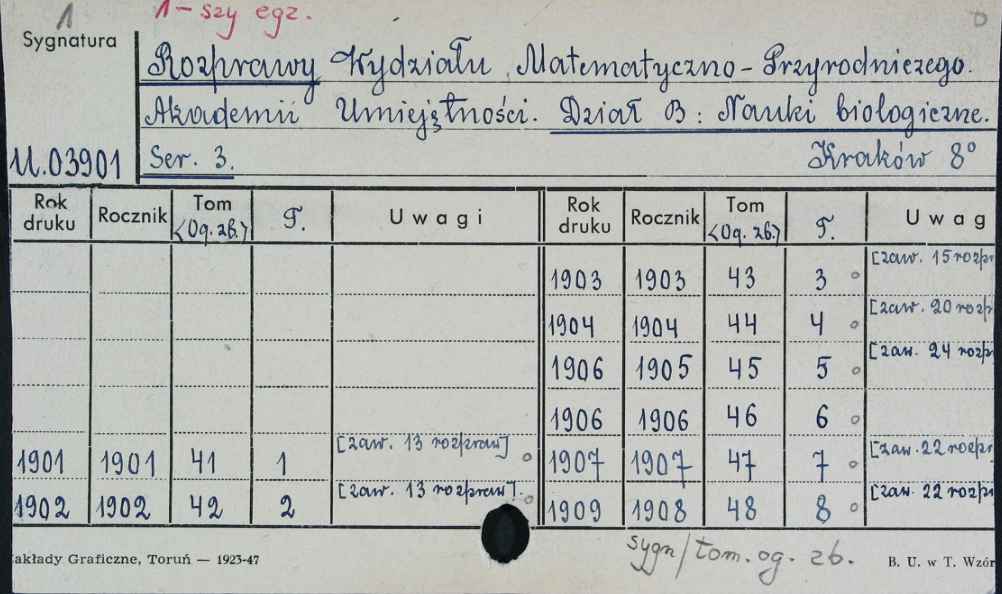 1
1-szy egz.
D
Sygnatura
Rozprawy Wydziału Matematyczno-Przyrodniczego.
Akademii Umiejętności. Dział B: Nauki biologiczne.
U.03901 Ser. 3. Kraków 8°
Rok druku Rocznik Tom <Og. zb.> T. Uwagi Rok druku Rocznik Tom <Og. zb.> T. Uwag
1903 1903 43 3 [zaw. 15 rozpr
1904 1904 44 4 [zaw. 20 rozp
1906 1905 45 5 [zaw. 24 rozp
1906 1906 46 6
1901 1901 41 1 [zaw. 13 rozpraw] 1907 1907 47 7 [zaw. 22 rozpr
1902 1902 42 2 [zaw. 13 rozpraw]. 1909 1908 48 8 [zaw. 22 rozpr
sygn/tom. og. zb.
akłady Graficzne, Toruń — 1923-47 B. U. w T. Wzór